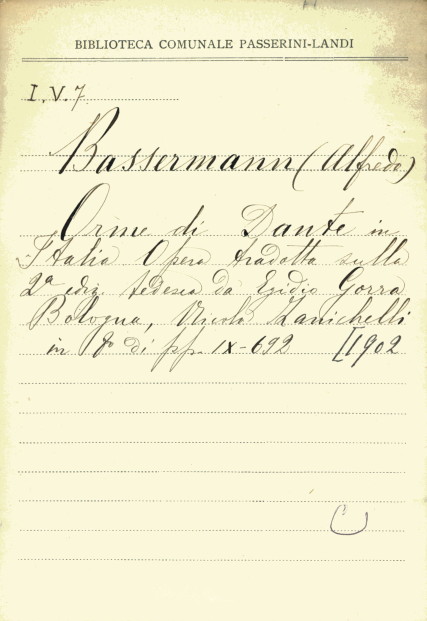 BIBLIOTECA COMUNALE PASSERINI-LANDI
I. V. 7
Bassermann (Alfredo)
Orme di Dante in
Italia Opera tradotta sulla
2ª ediz. tedesca da Egidio Gorra
Bologna, Nicola Zanichelli
in 8° di pp. IX-692 [1902